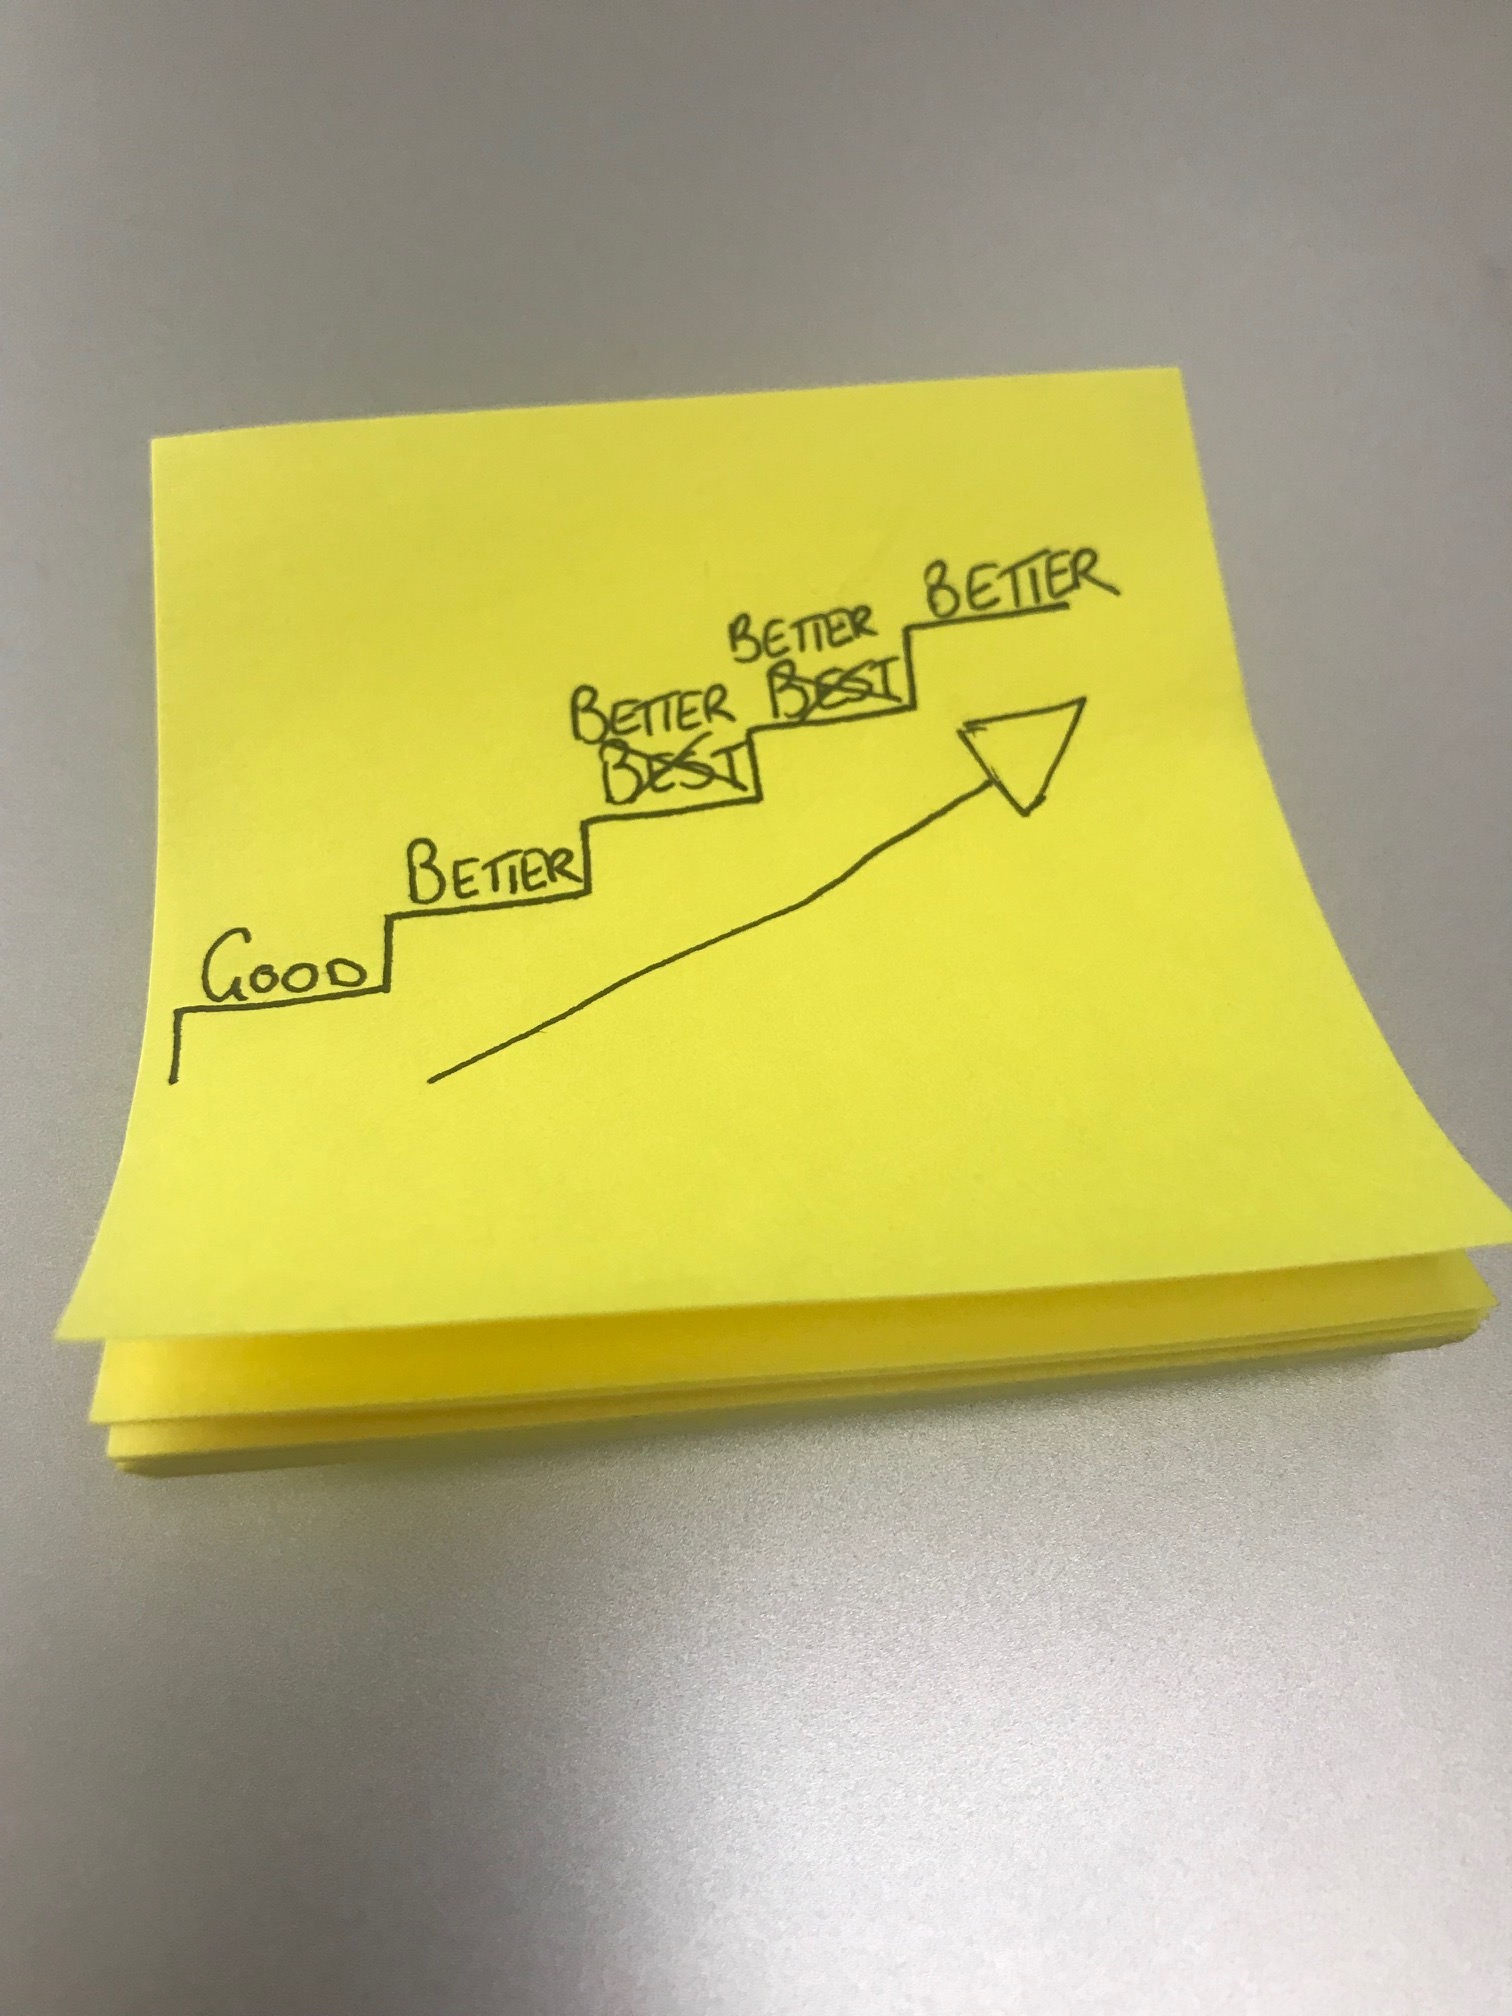 GOOD
BETTER
BETTER
BEST
BETTER
BEST
BETTER